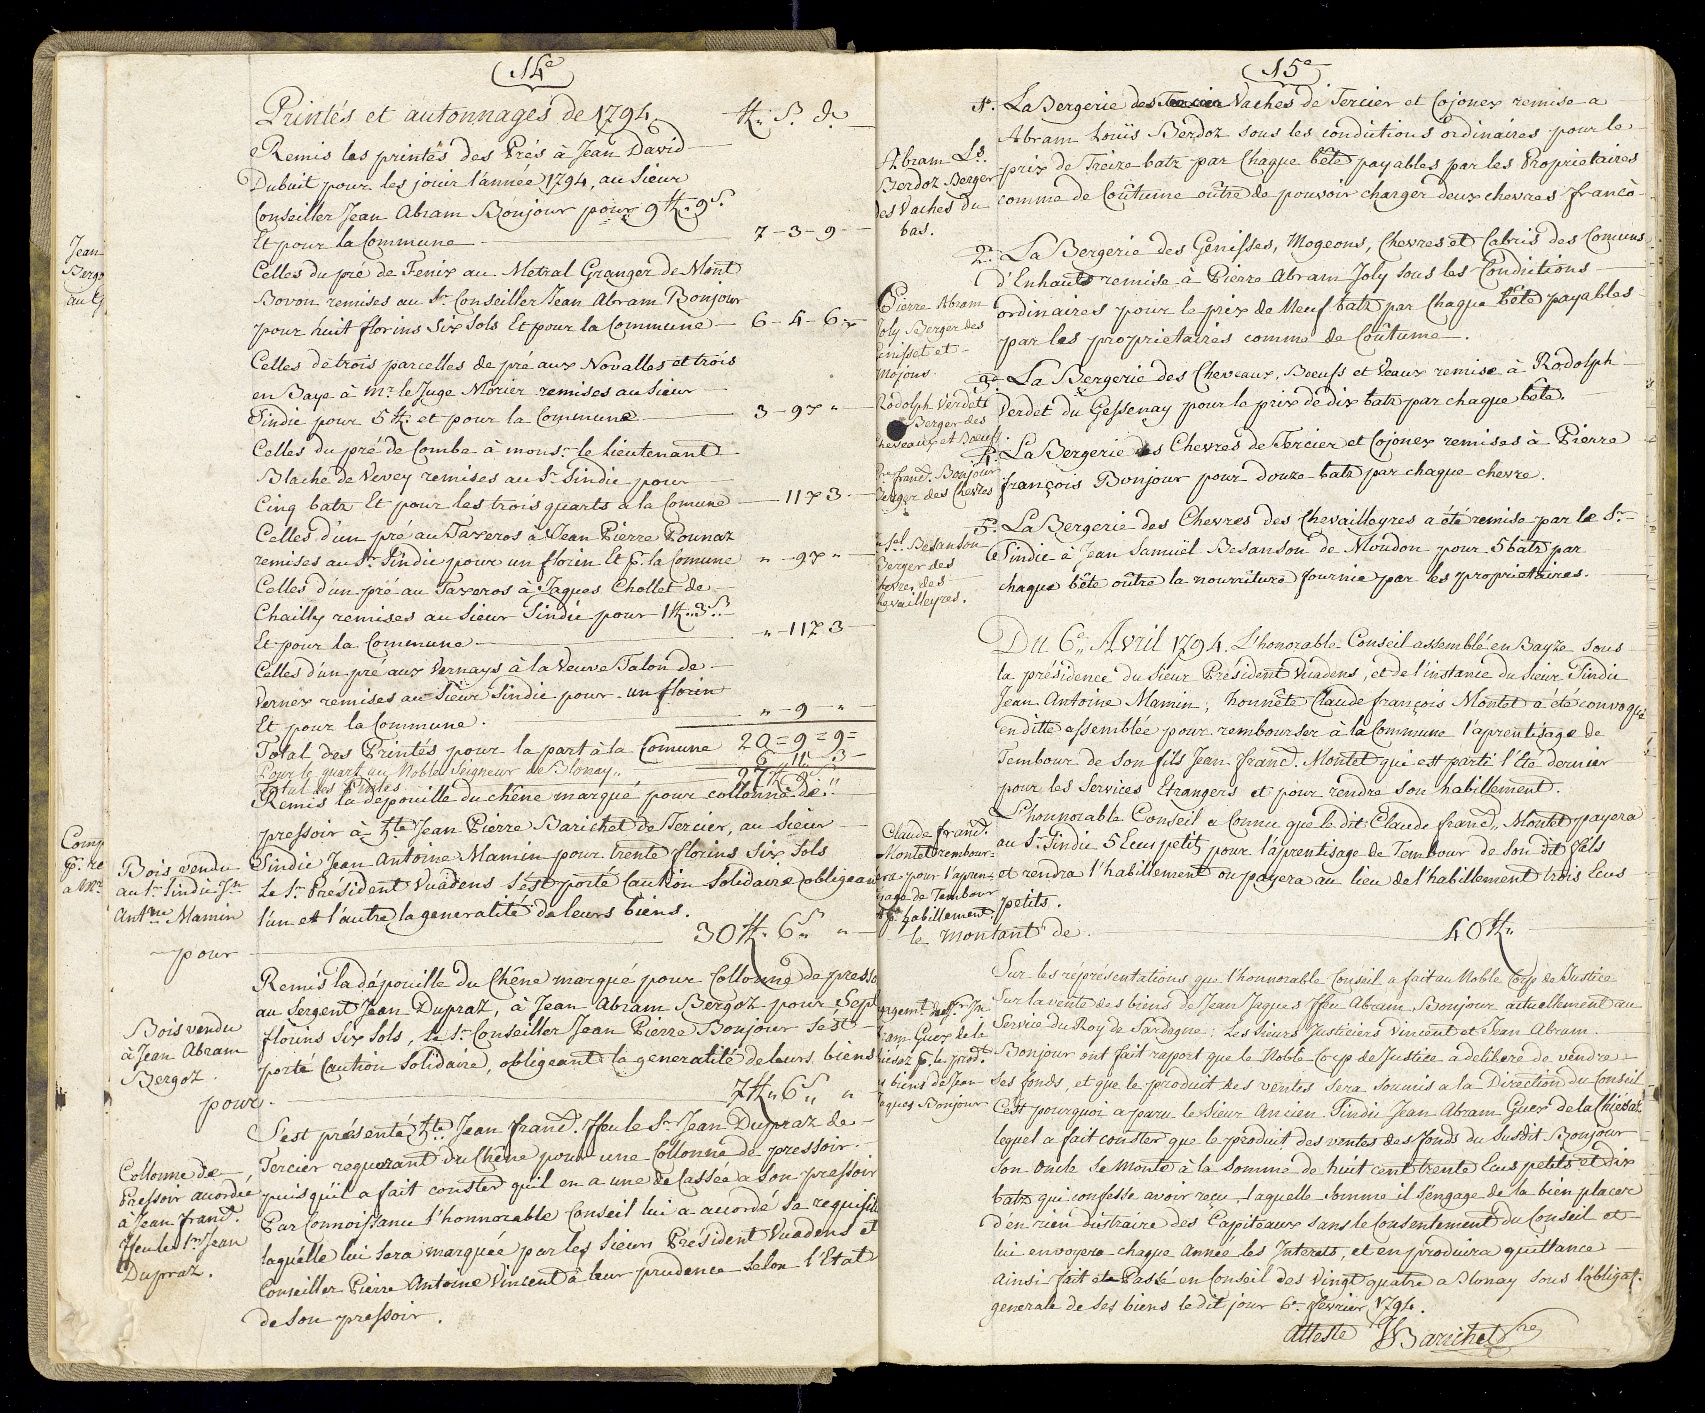 14e
Printés et autonnages de 1794.
ft. S. d.
Remis les printés des Prés à Jean David
Dubuit pour les jouir l'année 1794, au Sieur
Conseiller Jean Abram Bonjour pour 9 ft. 9 S.
Et pour la Commune 7 - 3 - 9
Celles du pré de Fenix au Metral Granger de Mont
Bovon remises au Sr. Conseiller Jean Abram Bonjour
pour huit florins six sols Et pour la Commune 6 - 4 - 6
Celles de trois parcelles de pré aux Novalles et trois
en Baye à Mr. le Juge Morier remises au Sieur
Sindic pour 5 ft. et pour la Commune 3 - 9 "
Celles du pré de Combe à monsr. le Lieutenant
Blache de Vevey remises au Sr. Sindic pour
Cinq batz Et pour les trois quarts à la Comune 11 3
Celles d'un pré au Taveros à Jean Pierre Pounaz
remises au Sr. Sindic pour un florin Et p. la Comune " - 9 "
Celles d'un pré au Taveros à Jaques Chollet de
Chailly remises au Sieur Sindic pour 1 ft. 3 S.
Et pour la Commune " - 11 3
Celles d'un pré aux Vernays à la Veuve Talon de
Vernex remises au Sieur Sindic pour un florin
Et pour la Commune. " - 9 "
Total des Printés pour la part à la Comune 20 = 9 = 9 =
Pour le quart au Noble Seigneur de Blonay 6 " 11 " 3
Total des Printés 27 ft. 9 S. "
Remis la dépouille du chêne marqué pour collonne de
pressoir à hte. Jean Pierre Barichet de Tercier, au Sieur
Sindic Jean Antoine Mamin pour trente florins six sols
Le Sr. Président Vuadens s'est porté Caution Solidaire obligeant
l'un et l'autre la generalité de leurs biens.
30 ft. 6 S. "
Bois vendu
au Sr. Sindic Jn.
Antne. Mamin
pour
Remis la dépouille du Chêne marqué pour Collonne de presso
au Sergent Jean Dupraz, à Jean Abram Bergoz pour Sept
florins Six Sols, le Sr. Conseiller Jean Pierre Bonjour s'ést
porté Caution Solidaire, obligeant la generalité de leurs biens
7 ft. 6 S. "
Bois vendu
à Jean Abram
Bergoz.
pour.
S'est présenté hte. Jean franç. ffeu le Sr. Jean Dupraz de
Tercier requerant du Chêne pour une Collonne de pressoir
puisqu'il a fait conster qu'il en a une de Cassée a son pressoir
Par Connoissance l'honnorable Conseil lui a accordé sa requisite
laquélle lui sera marquée par les Sieurs Président Vuadens et
Conseiller Pierre Antoine Vincent à leur prudence selon l'Etat
de son pressoir.
Collonne de
Pressoir accordée
à Jean franç.
ffeu le Sr. Jean
Dupraz.
Jean
Bergo
Comp
15e
1o. La Bergerie des Vaches de Tercier et Cojonex remise a
Abram Louïs Berdoz sous les conditions ordinaires pour le
prix de Treize batz par Chaque bête payables par les Proprietaires
comme de Coûtume oûtre de pouvoir charger deux chevres franco
Abram Ls.
Berdoz Berger
des Vaches du
bas.
2o. La Bergerie des Genisses, Mogeons, Chevres et Cabris des Comuns
d'Enhauts remise à Pierre Abram Joly sous les Conditions
ordinaires pour le prix de Neuf batz par Chaque bête payables
par les proprietaires comme de Coûtume.
Pierre Abram
Joly Berger des
Genisses et
Mojons.
3o. La Bergerie des Cheveaux, Boeufs et Veaux remise à Rodolph
Verdet du Gessenay pour le prix de dix batz par chaque bête.
Rodolph Verdett
Berger des
Cheveaux et Boeufs.
4o. La Bergerie des Chevres de Tercier et Cojonex remises à Pierre
françois Bonjour pour douze batz par chaque chevre.
franç. Bonjour
Berger des Chevres
5o. La Bergerie des Chevres des Chevalleyres a été remise par le Sr.
Sindic à Jean Samuël Besanson de Moudon pour 5 batz par
chaque bête oûtre la nourriture fournie par les proprietaires.
Sel. Besanson
Berger des
Chevres des
Chevailleyres.
Du 6e. Avril 1794. L'honorable Conseil assemblé en Bayze sous
la présidence du Sieur Président Vuadens, et de l'instance du Sieur Sindic
Jean Antoine Mamin, honnête Claude françois Montet a été convoqué
en ditte assemblée pour rembourser à la Commune l'aprentisage de
Tembour de son fils Jean franç. Montet qui est parti l'été dernier
pour les Services Etrangers et pour rendre son habillement.
L'honnorable Conseil a Connu que le dit Claude franç. Montet payera
au Sr. Sindic 5 Ecus petits pour l'aprentisage de Tembour de son dit fils
et rendra l'habillement ou payera au lieu de l'habillement trois Ecus
petits.
le montant de 40 ft.
Claude franç.
Montet rembour=
sera pour l'apren=
tisage de Tembour
& p. habillement.
Sur les réprésentations que l'honnorable Conseil a fait au Noble Corp de Justice
Sur la vente des biens de Jean Jaques ffeu Abram Bonjour actuellement au
Service du Roy de Sardagne: Les Sieurs Justiciers Vincent et Jean Abram
Bonjour ont fait raport que le Noble Corp de Justice a deliberé de vendre
ses fonds, et que le produit des ventes sera soumis a la Direction du Conseil
C'est pourquoi a paru le Sieur Ancien Sindic Jean Abram Guex de la Chiésaz
lequel a fait conster que le produit des ventes des fonds du Susdit Bonjour
son Oncle se monte à la somme de huit cent trente Ecus petits et dix
batz qui confesse avoir reçu laquelle somme il s'engage de la bien placer
d'en rien distraire des Capiteaux sans le Consentement du Conseil et
lui envoyera chaque Année les Interets, et en produira quittance
Ainsi fait et Passé en Conseil des Vingt quatre a Blonay sous l'obligat.
generale de ses biens le dit jour 6e. fevrier 1794.
Atteste JBarichet
Guex de la
p. le prod.
biens de Jean
Jaques Bonjour